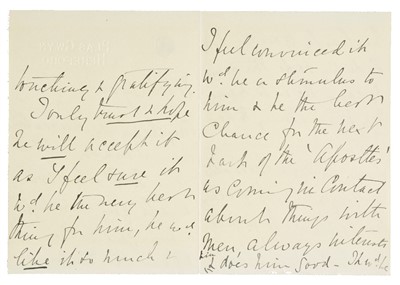 touching & gratifying.
I only trust & hope
he will accept it
as I feel sure it
wd. be the very best
thing for him, he wd.
like it so much &
I feel convinced it
wd. be a stimulus to
him & be the best
chance for the next
task of the 'Apostles'
as coming in contact
about things with
men always interests
him & does him good -